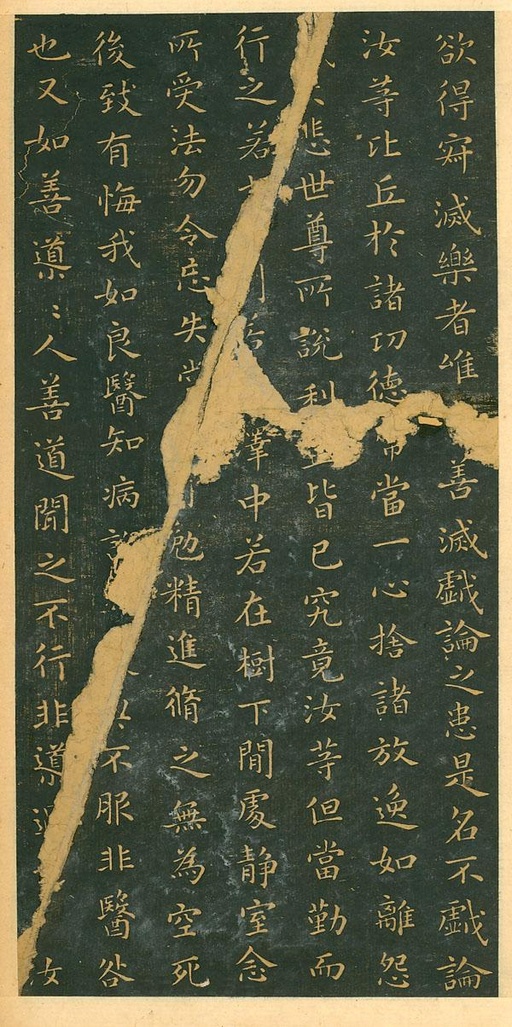 欲得寂滅樂者唯善滅戲論之患是名不戲論
汝等比丘於諸功德常當一心捨諸放逸如離怨
悲世尊所說利益皆已究竟汝等但當勤而
行之若中若在樹下閒處靜室念
所受法勿令忘失常勉精進脩之無為空死
後致有悔我如良醫知病不服非醫咎
也又如善導〻人善道聞之不行非導過汝